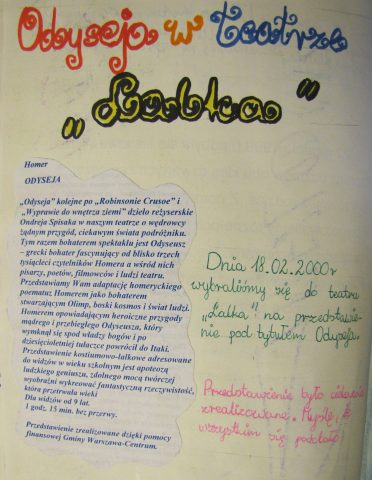 Odyseja w teatrze
„Lalka"
Homer
ODYSEJA
„Odyseja" kolejne po „Robinsonie Crusoe" i
„Wyprawie do wnętrza ziemi" dzieło reżyserskie
Ondreja Spisaka w naszym teatrze o wędrowcy
żądnym przygód, ciekawym świata podróżniku.
Tym razem bohaterem spektaklu jest Odyseusz
– grecki bohater fascynujący od blisko trzech
tysiącleci czytelników Homera a wśród nich
pisarzy, poetów, filmowców i ludzi teatru.
Przedstawiamy Wam adaptację homeryckiego
poematu z Homerem jako bohaterem
stwarzającym Olimp, boski kosmos i świat ludzi.
Homerem opowiadającym heroiczne przygody
mądrego i przebiegłego Odyseusza, który
wymknął się spod władzy bogów i po
dziesięcioletniej tułaczce powrócił do Itaki.
Przedstawienie kostiumowo-lalkowe adresowane
do widzów w wieku szkolnym jest apoteozą
ludzkiego geniuszu, zdolnego mocą twórczej
wyobraźni wykreować fantastyczną rzeczywistość,
która przetrwała wieki
Dla widzów od 9 lat.
1 godz. 15 min. bez przerwy.
Przedstawienie zrealizowane dzięki pomocy
finansowej Gminy Warszawa-Centrum.
Dnia 18.02.2000r
wybraliśmy się do teatru
„Lalka" na przedstawie-
nie pod tytułem Odyseja.
Przedstawienie było ciekawie
zrealizowane. Myślę, że
wszystkim się podobało